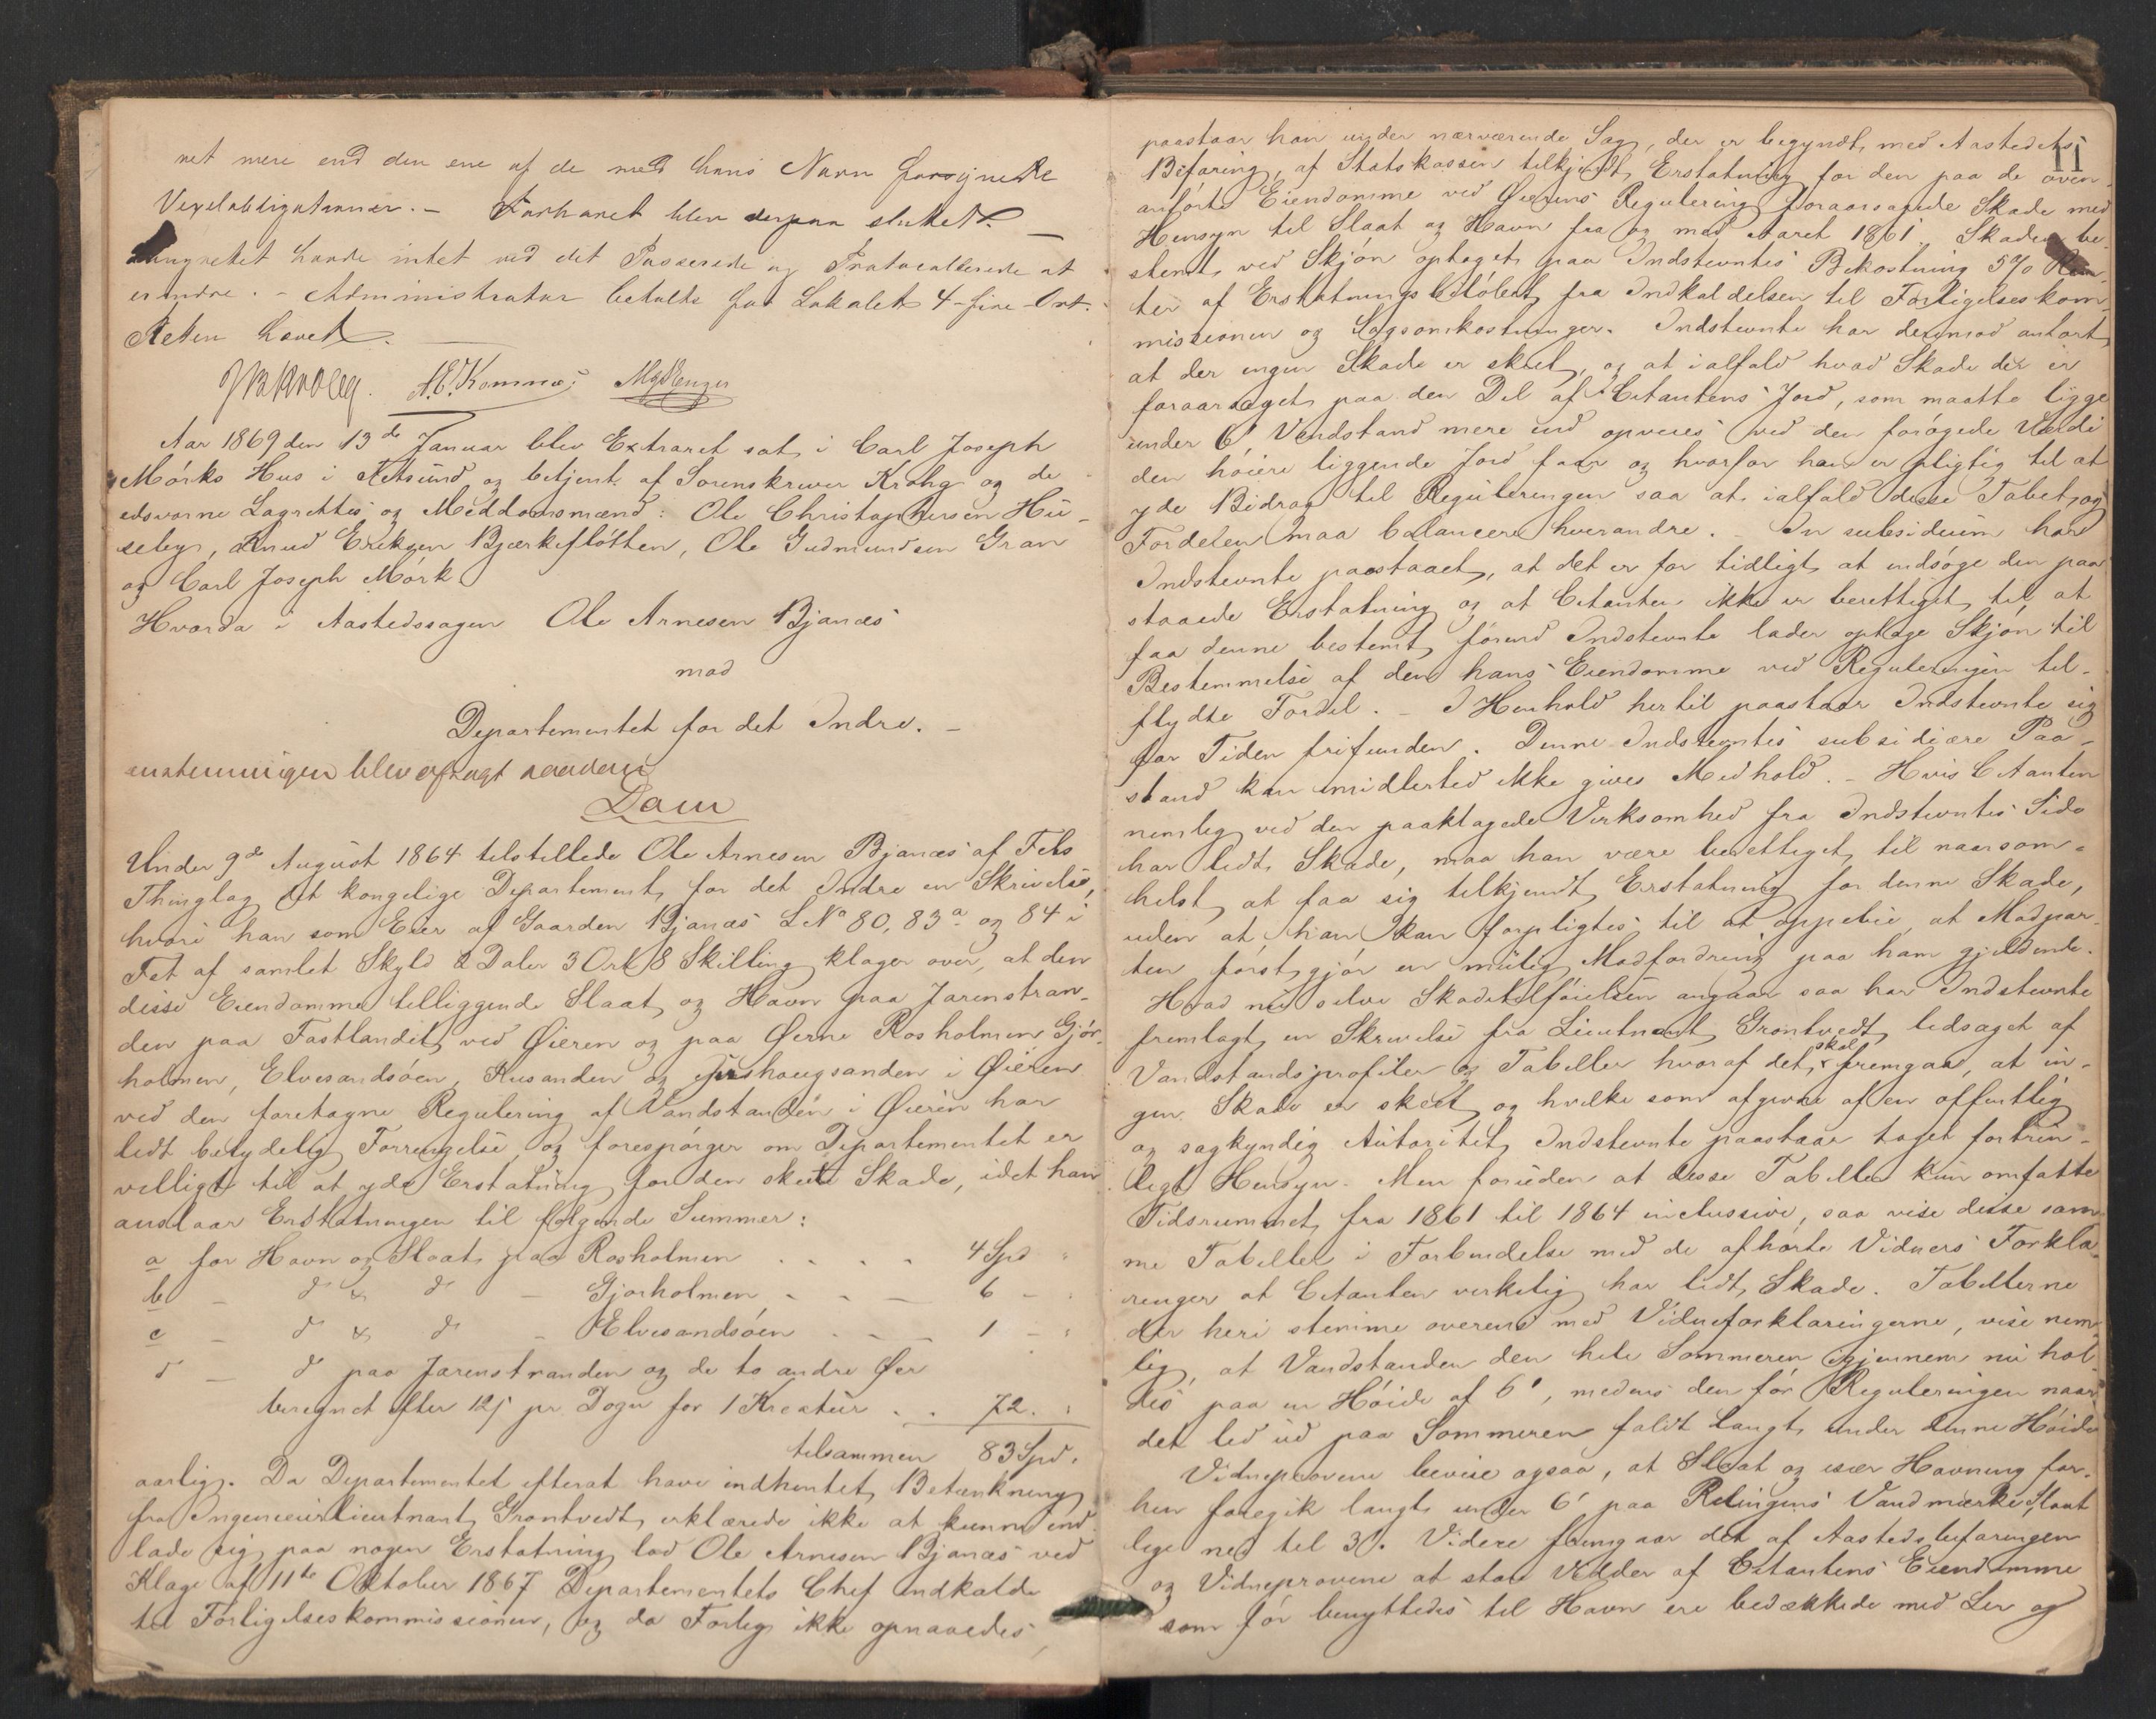 ret mere end den ene af de med hans Navn forsynede
Vexelobligationer. – Forhøret blev derpaa sluttet. –
Laugrettet havde intet ved det Passerede og Protocollerede at
erindre. – Administrator betalte for Lokalet 4 – fire Ort.
Retten hævet.
Aar 1869 den 13de Januar blev Extraret sat i Carl Joseph
Mørks Hus i Fetsund og betjent af Sorenskriver Krohg og de
edsvorne Lagrettes og Meddomsmænd: Ole Christophersen Hu-
seby, Knud Eriksen Bjerkesløtten, Ole Gudmundsen Gran
og Carl Joseph Mørk
Hvorda i Aastedssagen Ole Arnesen Bjanæs
mod
Departementet for det Indre. –
enstemmigen blev afsagt saadan
Dom
Under 9de August 1864 tilstillede Ole Arnesen Bjanæs af Fets
Thinglag det kongelige Departement for det Indre en Skrivelse,
hvori han som Eier af Gaarden Bjanæs LNo 80, 83a og 84 i
Fet af samlet Skyld 2 Daler 3 Ort 8 Skilling klager over, at den
disse Eiendomme tilliggende Slaat og Havn paa Jarenstran-
den paa Fastlandet ved Øieren og paa Øerne Rosholmen Gjør-
holmen, Elvesandsøen, Rusanden og Gjushaugsanden i Øieren
ved den foretagne Regulering af Vandstanden i Øieren har
lidt betydelig Forringelse og forespørger om Departementet er
villigt til at yde Erstatning for den skete Skade, idet han
anslaar Erstatningen til følgende Summer:
a for Havn og Slaat paa Rosholmen . . . . 4 Spd
b – do & do – Gjørholmen . . – 6 –
c – do & do – Elvesandsøen . . – 1 –
d – d paa Jarenstranden og de to andre Øer
beregnet efter 12 s pr. Døgn for 1 Kreatur . . 72. :
tilsammen 83 Spd.
aarlig. Da Departementet efterat have indhentet Betænkning
fra Ingenieurlieutnant Grøntvedt erklærede ikke at kunne ind-
lade sig paa nogen Erstatning lod Ole Arnesen Bjanæs ved
Klage af 11te Oktober 1867 Departementets Chef indkalde
til Forligelseskommissionen, og da Forlig ikke opnaaedes,
11
paastaar han under nærværende Sag, der er begyndt med Aastedets
Befaring, af Statskassen tilkjendt Erstatning for den paa de oven-
anførte Eiendomme ved Øierens Regulering foraarsagede Skade med
Hensyn til Slaat og Havn fra og med Aaret 1861. Skaden be-
stemt ved Skjøn optaget paa Indstevntes Bekostning 5% Ren-
ter af Erstatningsbeløbet fra Indkaldelsen til Forligelseskom-
missionen og Sagsomkostninger. Indstevnte har derimod anført
at der ingen Skade er skeet, og at ialfald hvad Skade der er
foraarsaget paa den Del af Citantens Jord, som maatte ligge
under 6' Vandstand mere end opveies ved den forøgede Værdi
den høiere liggende Jord faar og hvorfor han er pligtig til at
yde Bidrag til Reguleringen saa at ialfald disse Tabet og
Fordelen maa balancere hverandre. – In subsidium har
Indstevnte paastaaet, at det er for tidligt at indsøge den paa-
staaede Erstatning og at Citanten ikke er berettiget til at
faa denne bestemt, førend Indstevnte lader optage Skjøn til
Bestemmelse af den hans Eiendomme ved Reguleringen til-
flydte Fordel. – I Henhold hertil paastaar Indstevnte sig
for Tiden frifunden. Denne Indstevntes subsidiære Paa-
stand kan imidlertid ikke gives Medhold. – Hvis Citanten
nemlig ved den paaklagede Virksomhed fra Indstevntes Side
har lidt Skade, maa han være berettiget til naarsom-
helst at faa sig tilkjendt Erstatning for denne Skade,
uden at han kan forpligtes til at oppebie at Modpar-
ten først gjør en mulig Modfordring paa ham gjeldende.
Hvad nu selve Skadetilføielsen angaar saa har Indstevnte
fremlagt en Skrivelse fra Lieutnant Grøntvedt ledsaget af
Vandstandsprofiler og Tabeller hvoraf det skal fremgaa, at in-
gen Skade er skeet og hvilke som afgivne af en offentlig
og sagkyndig Autoritet, Indstevnte paastaar taget fortrin-
ligt Hensyn. Men foruden at disse Tabeller kun omfatte
Tidsrummet fra 1861 til 1864 inclusive, saa vise disse sam-
me Tabeller i Forbindelse med de afhørte Vidners Forkla-
ringer at Citanten virkelig har lidt Skade. Tabellerne
der heri stemme overens med Vidneforklaringerne, vise nem-
lig, at Vandstanden den hele Sommeren igjennem nu hol-
des paa en Høide af 6', medens den før Reguleringen naar
det led ud paa Sommeren faldt langt under denne Høide
Vidneprovene bevise ogsaa, at Slaat og især Havning for-
hen foregik langt under 6' paa Rælingens Vandmærke, Slaat
lige ned til 3'. Videre fremgaar det af Aastedsbefaringen
og Vidneprovene at store Vidder af Citantens Eiendomme
som før benyttedes til Havn ere bedækkede med Ler og